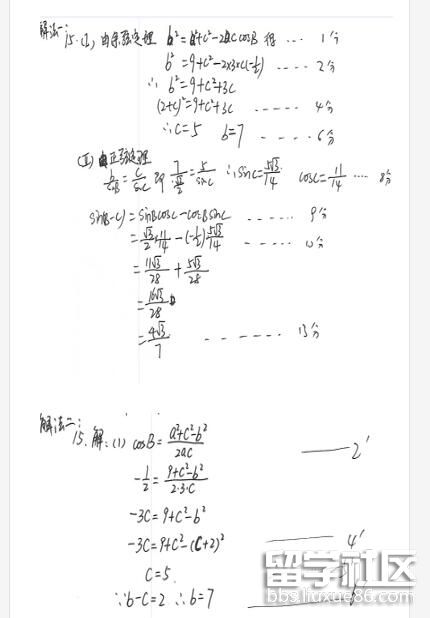 解法一:
15.(I) 由余弦定理 b²=a²+c²-2accosB 得 ... 1分
b²=9+c²-2×3×c(-½) .... 2分
∴ b²=9+c²+3c
(2+c)²=9+c²+3c ..... 4分
∴c=5 b=7 .... 6分
(II) 由正弦定理
b/sinB=c/sinC 即 7/(√3/2)=5/sinC ∴sinC=5√3/14 cosC=11/14 .... 8分
sin(B-C)=sinBcosC-cosBsinC ..... 9分
=√3/2×11/14-(-½)5√3/14 ..... 10分
=11√3/28+5√3/28
=16√3/28
=4√3/7 ...... 13分
解法二:
15. 解:(1) cosB=(a²+c²-b²)/2ac —— 2'
-1/2=(9+c²-b²)/(2·3·c)
-3c=9+c²-b²
-3c=9+c²-(c+2)² —— 4'
c=5.
∵b-c=2 ∴b=7
留学社区
bbs.liuxue86.com